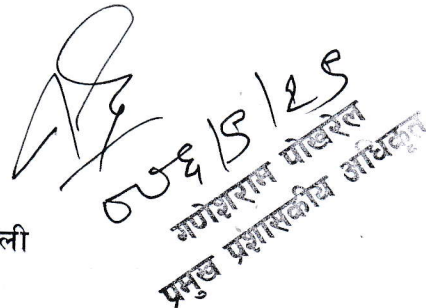 ०७६/९/२९
गणेशराम पोखरेल
प्रमुख प्रशासकीय अधिकृत
ली